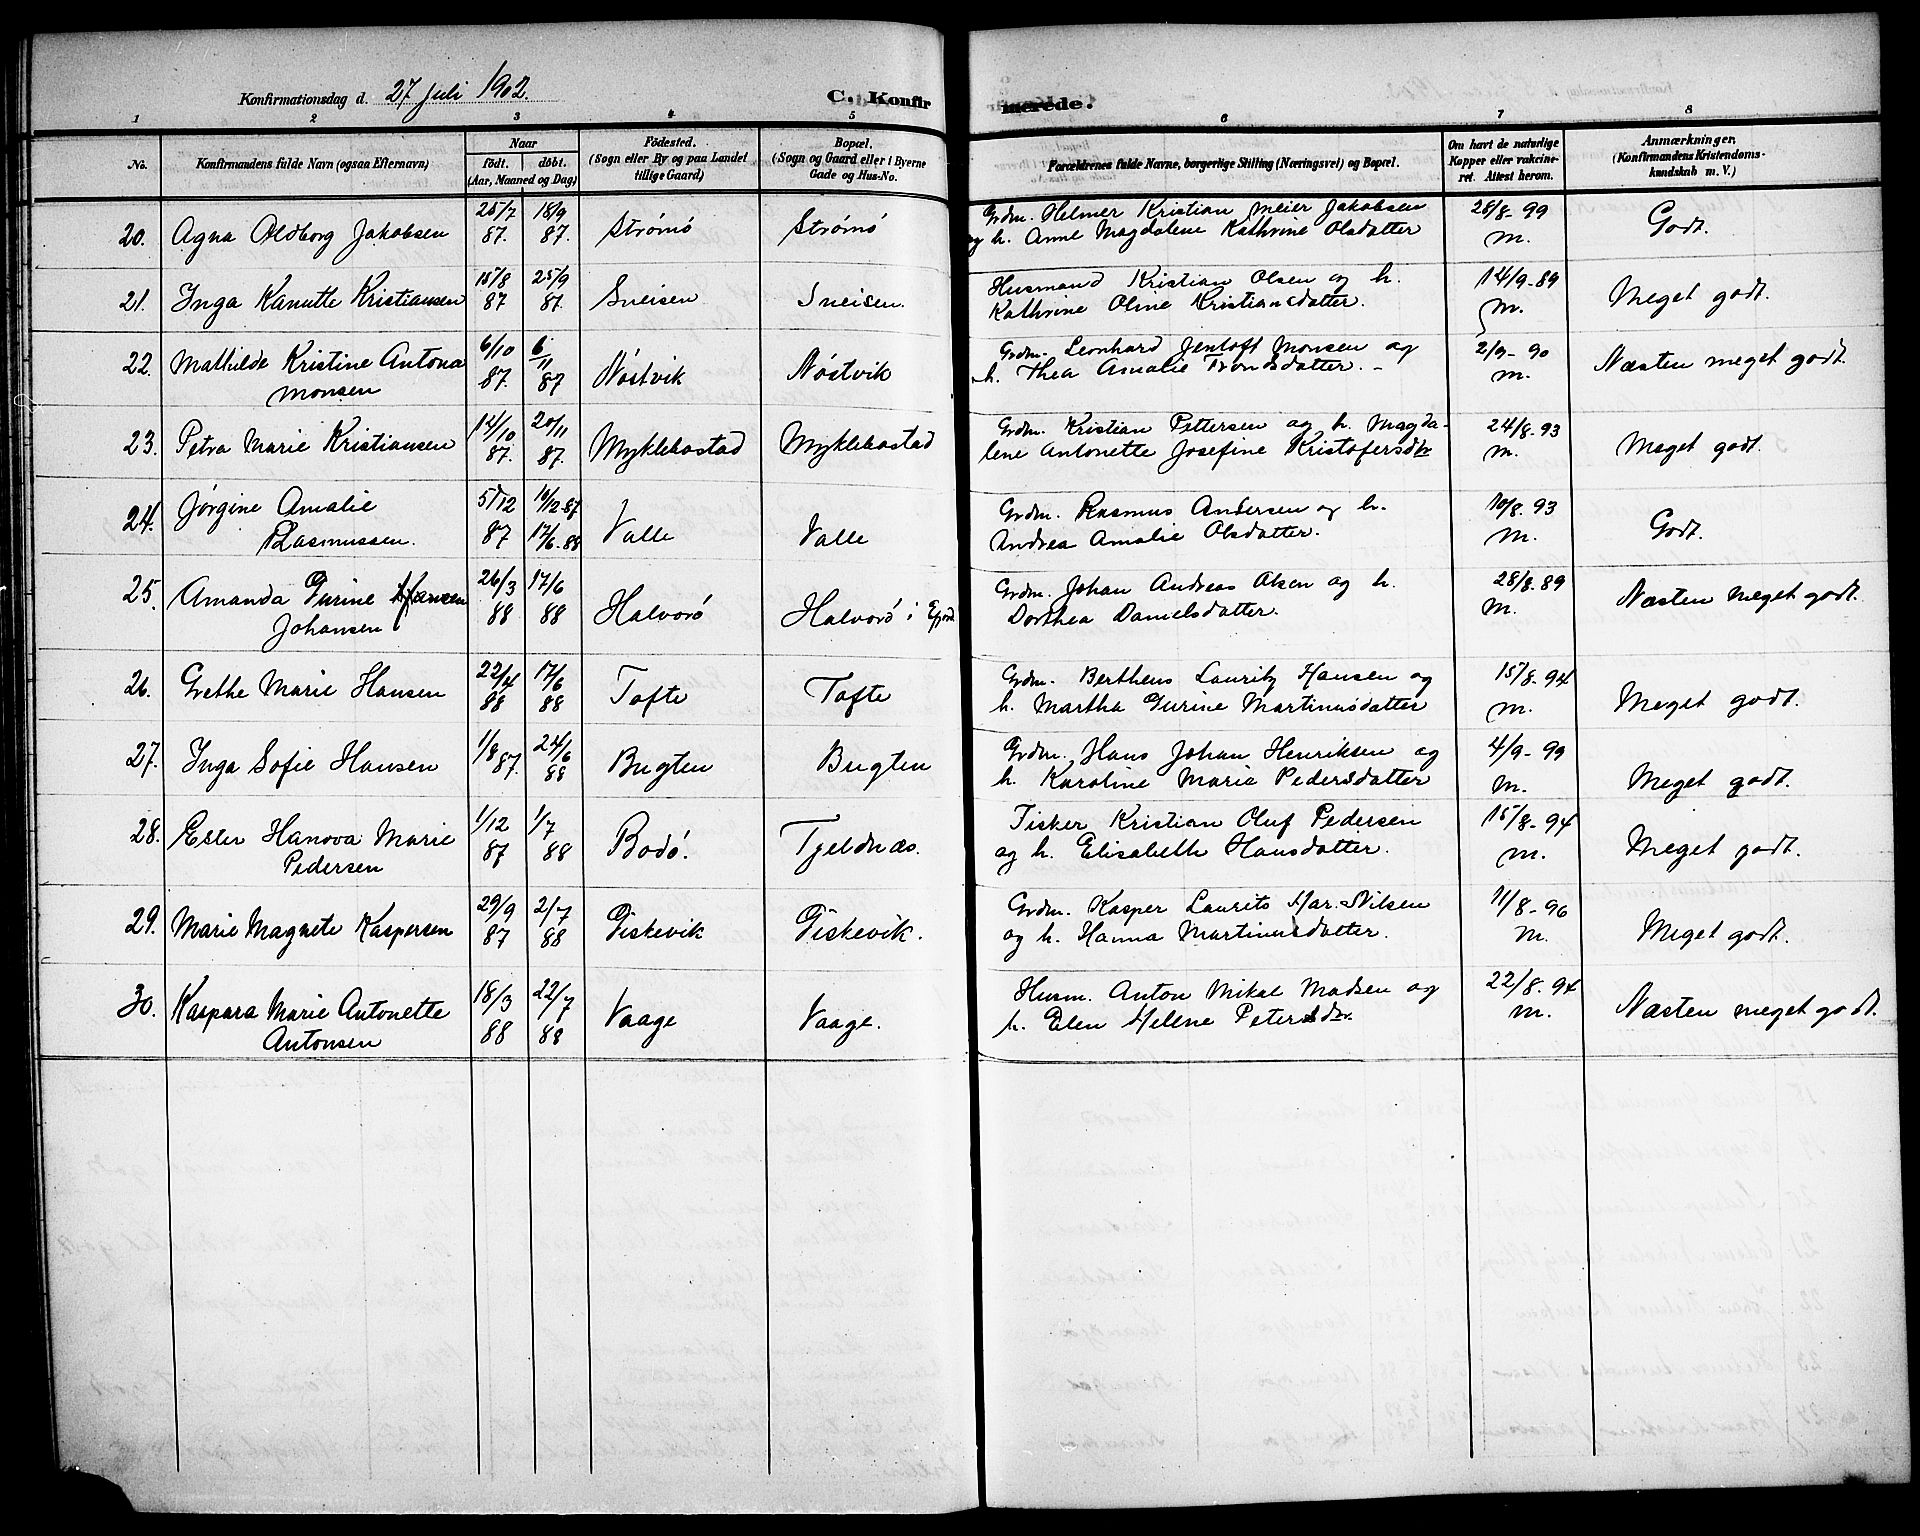 Konfirmationsdag d. 27 Juli 1902. C. Konfirmerede.
1 2 3 4 5 6 7 8
No. Konfirmandens fulde Navn (ogsaa Efternavn) Naar født. døbt. (Aar, Maaned og Dag) Fødested. (Sogn eller By og paa Landet tillige Gaard) Bopæl. (Sogn og Gaard eller i Byerne Gade og Hus-No. Forældrenes fulde Navne, borgerlige Stilling (Næringsvei) og Bopæl. Om havt de naturlige Kopper eller vakcineret. Attest herom. Anmærkninger. (Konfirmandens Kristendomskundskab m. V.)
20. Agna Aldborg Jakobsen 25/7 87. 18/9 87. Strømö Strømö Grdm. Helmer Kristian Meier Jakobsen
og h. Anne Magdalene Kathrine Olsdatter 28/8-99 M. Godt.
21. Inga Kanutte Kristiansen 15/8 87 25/9 87. Sneisen Sneisen. Husmand Kristian Olsen og h.
Kathrine Oline Kristiansdatter. 14/9-89 M. Meget godt.
22. Mathilde Kristine Antona
Monsen 6/10 87. 6/11 87 Nöstvik Nöstvik Grdm. Leonhard Jentoft Monsen og
h. Thea Amalie Trondsdatter. - 2/9-90 M. Næsten meget godt.
23. Petra Marie Kristiansen 14/10 87. 20/11 87. Myklebostad Myklebostad Grdm. Kristian Pettersen og h. Magda-
lene Antonette Josefine Kristofersdtr 24/8-93 M. Meget godt.
24. Jørgine Amalie
Rasmussen. 5/12 87 16/12-87 17/6-88 Valle Valle Grdm. Rasmus Andersen og h.
Andrea Amalie Olsdatter. 10/8.93 M. Godt.
25. Amanda Gurine Hansen
Johansen 26/3 88 17/6 88 Halvorö Halvorö i Grdm. Johan Andreas Olsen og h.
Dorthea Danielsdatter. 28/8.89 M. Næsten meget godt.
26. Grethe Marie Hansen 22/4 88 17/6 88 Tofte Tofte Grdm. Bertheus Lauritz Hansen og
h. Martha Gurine Martinusdatter 15/8.94 M. Meget godt.
27. Inga Sofie Hansen 1/8 87. 24/6 88 Bugten Bugten Grdm. Hans Johan Henriksen og
h. Karoline Marie Pedersdatter 4/9-99 M. Meget godt.
28. Ester Hanova Marie
Pedersen 1/12 87 1/7 88 Bodö. Tjeldnæs. Fisker Kristian Oluf Pedersen
og h. Elisabeth Hansdatter. 15/8-94 M. Meget godt.
29. Marie Magnete Kaspersen 29/9 87 2/7 88 Giskevik Giskevik. Grdm. Kasper Laurits Mar. Nilsen
og h. Hanna Martinusdatter. 11/8-96 M. Meget godt.
30. Kaspara Marie Antonette
Antonsen 18/3 88 22/7 88 Vaage Vaage. Husm. Anton Mikal Madsen og
h. Elen Helene Petersdtr. 22/8.94 M. Næsten meget godt.